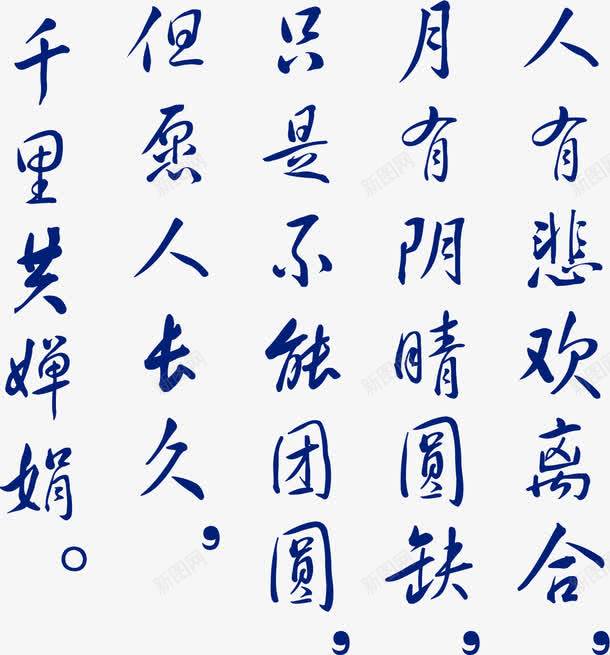 人有悲欢离合，
月有阴晴圆缺，
只是不能团圆，
但愿人长久，
千里共婵娟。